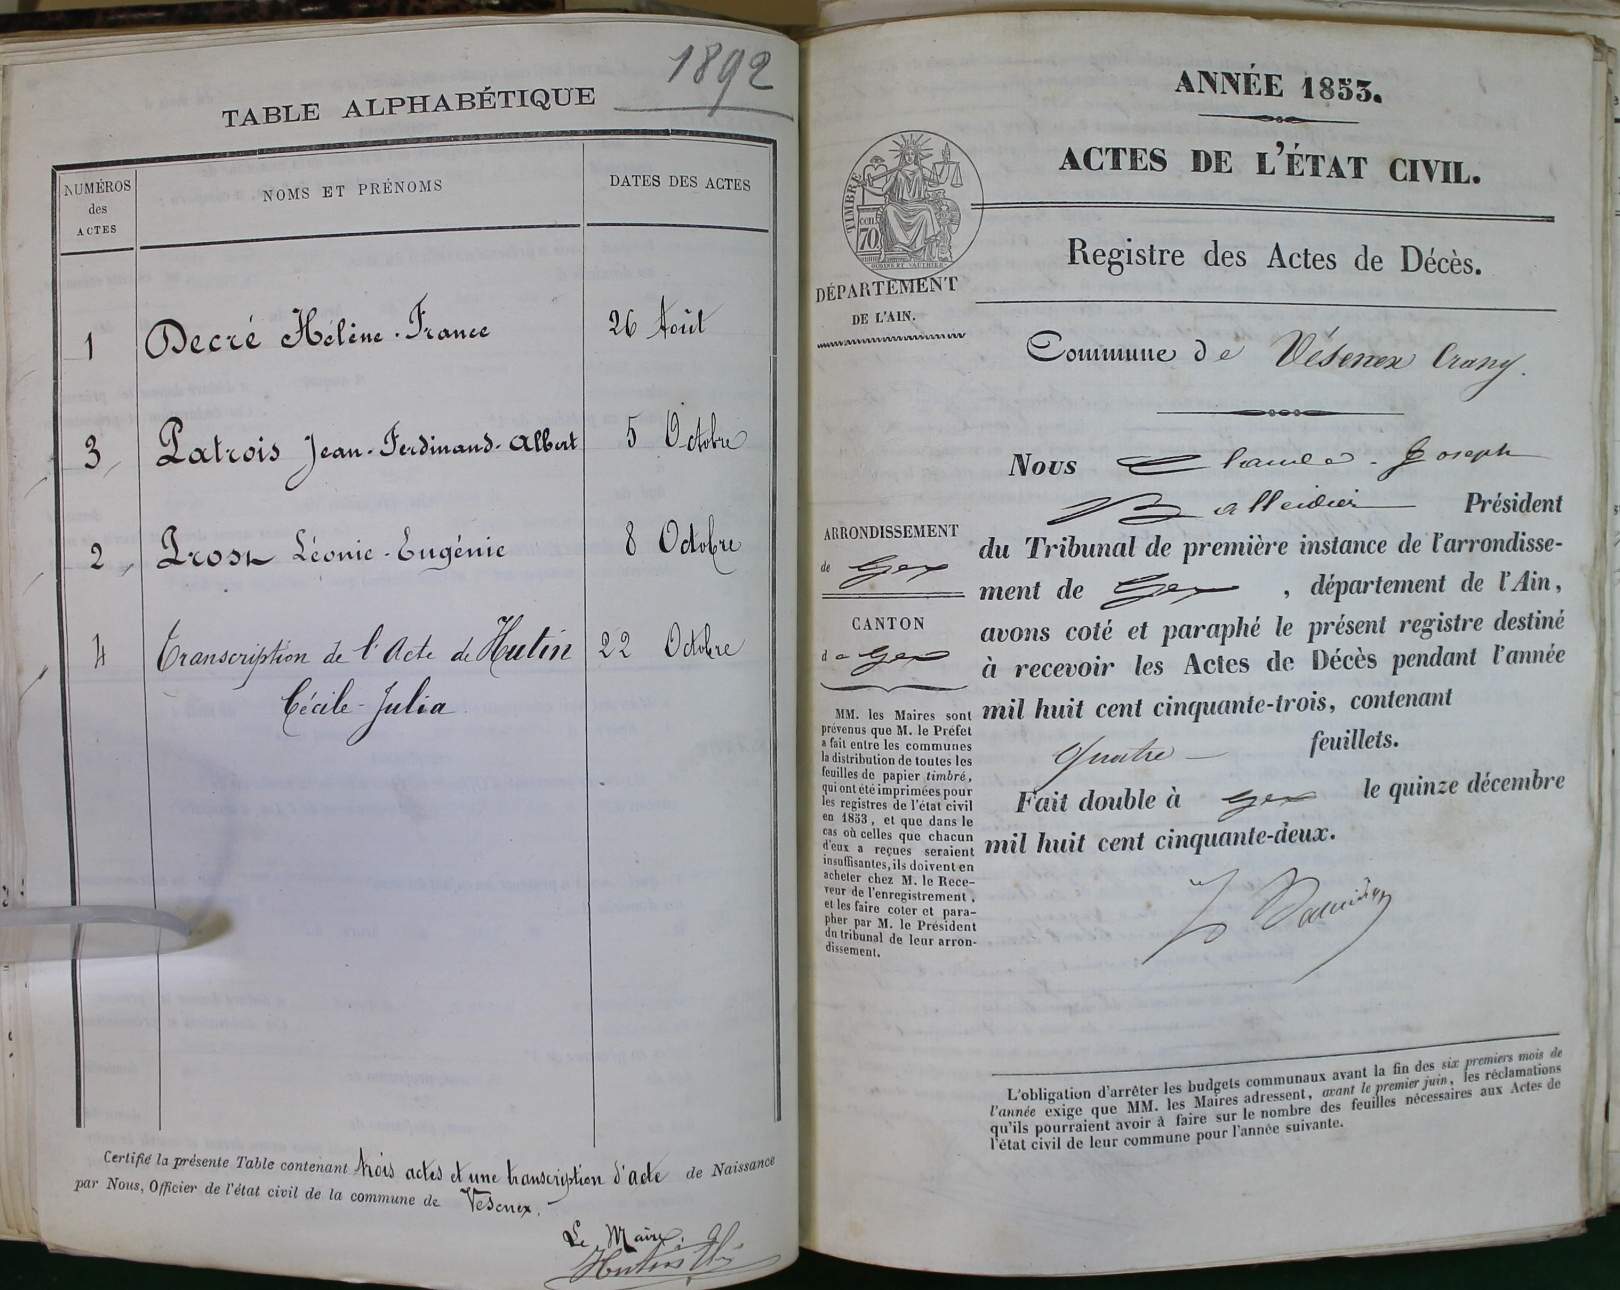 1892
TABLE ALPHABÉTIQUE
NUMÉROS des ACTES
NOMS ET PRÉNOMS
DATES DES ACTES
1 Decré Hélène-France 26 Août
3 Patrois Jean-Ferdinand-Albert 5 Octobre
2 Prost Léonie-Eugénie 8 Octobre
4 Transcription de l'Acte de Hutin 22 Octobre
Cécile-Julia
Certifié la présente Table contenant trois actes et une transcription d'acte de Naissance
par Nous, Officier de l'état civil de la commune de Vesenex.
Le Maire,
ANNÉE 1853.
ACTES DE L'ÉTAT CIVIL.
TIMBRE
cen.
70
Registre des Actes de Décès.
DÉPARTEMENT
DE L'AIN.
Commune de Vésenex Crassy.
Nous Claude-Joseph
Balleidier Président
du Tribunal de première instance de l'arrondisse-
ment de Gex, département de l'Ain,
avons coté et paraphé le présent registre destiné
à recevoir les Actes de Décès pendant l'année
mil huit cent cinquante-trois, contenant
quatre feuillets.
Fait double à Gex le quinze décembre
mil huit cent cinquante-deux.
ARRONDISSEMENT
de Gex
CANTON
de Gex
MM. les Maires sont
prévenus que M. le Préfet
a fait entre les communes
la distribution de toutes les
feuilles de papier timbré,
qui ont été imprimées pour
les registres de l'état civil
en 1853, et que dans le
cas où celles que chacun
d'eux a reçues seraient
insuffisantes, ils doivent en
acheter chez M. le Rece-
veur de l'enregistrement,
et les faire coter et para-
pher par M. le Président
du tribunal de leur arron-
dissement.
L'obligation d'arrêter les budgets communaux avant la fin des six premiers mois de
l'année exige que MM. les Maires adressent, avant le premier juin, les réclamations
qu'ils pourraient avoir à faire sur le nombre des feuilles nécessaires aux Actes de
l'état civil de leur commune pour l'année suivante.